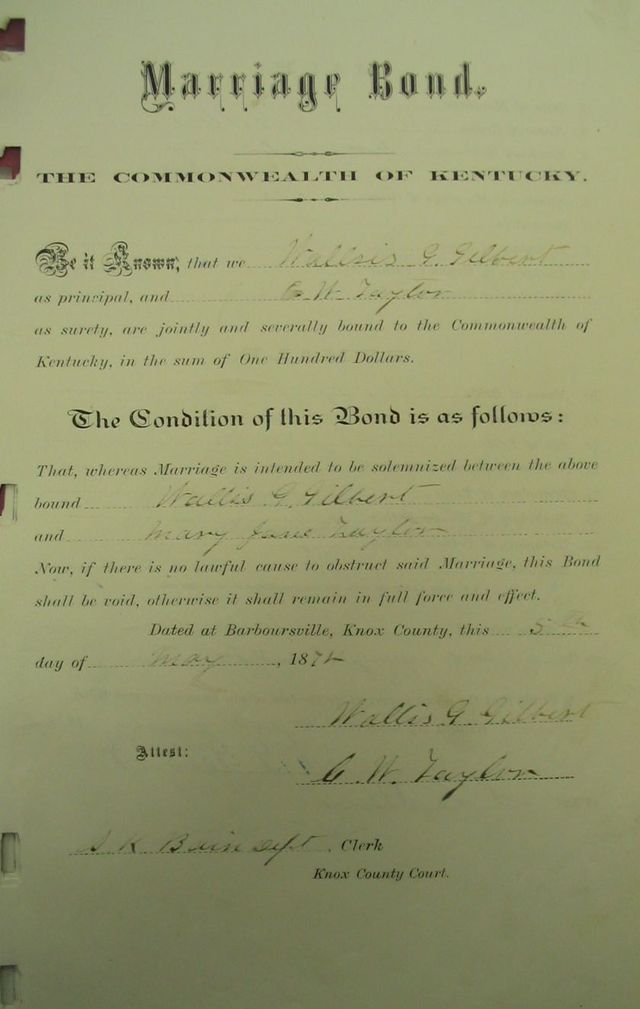 Marriage Bond.
THE COMMONWEALTH OF KENTUCKY.
Be it Known, that we Wallsis G. Gilbert
as principal, and C. W. Taylor
as surety, are jointly and severally bound to the Commonwealth of
Kentucky, in the sum of One Hundred Dollars.
The Condition of this Bond is as follows:
That, whereas Marriage is intended to be solemnized between the above
bound Wallis G. Gilbert
and Mary Jane Taylor
Now, if there is no lawful cause to obstruct said Marriage, this Bond
shall be void, otherwise it shall remain in full force and effect.
Dated at Barboursville, Knox County, this 5th
day of May, 187
Wallis G. Gilbert
Attest:
C. W. Taylor
Dept. Clerk
Knox County Court.